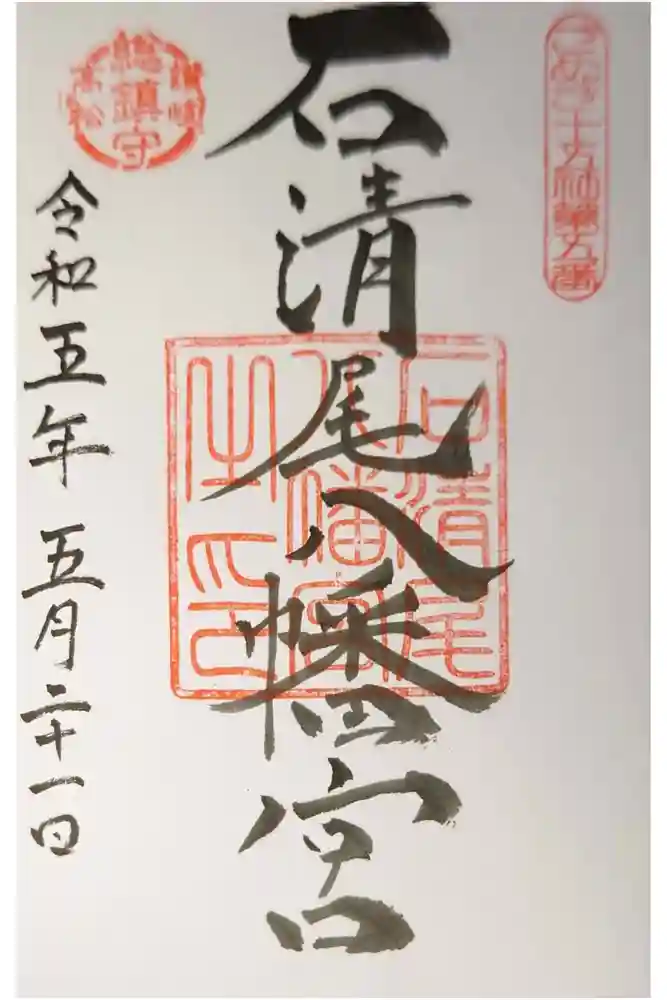 さぬき十五社第五番
石清尾八幡宮
石清尾
八幡宮
之印
讃岐
總鎮守
高松
令和五年 五月二十一日